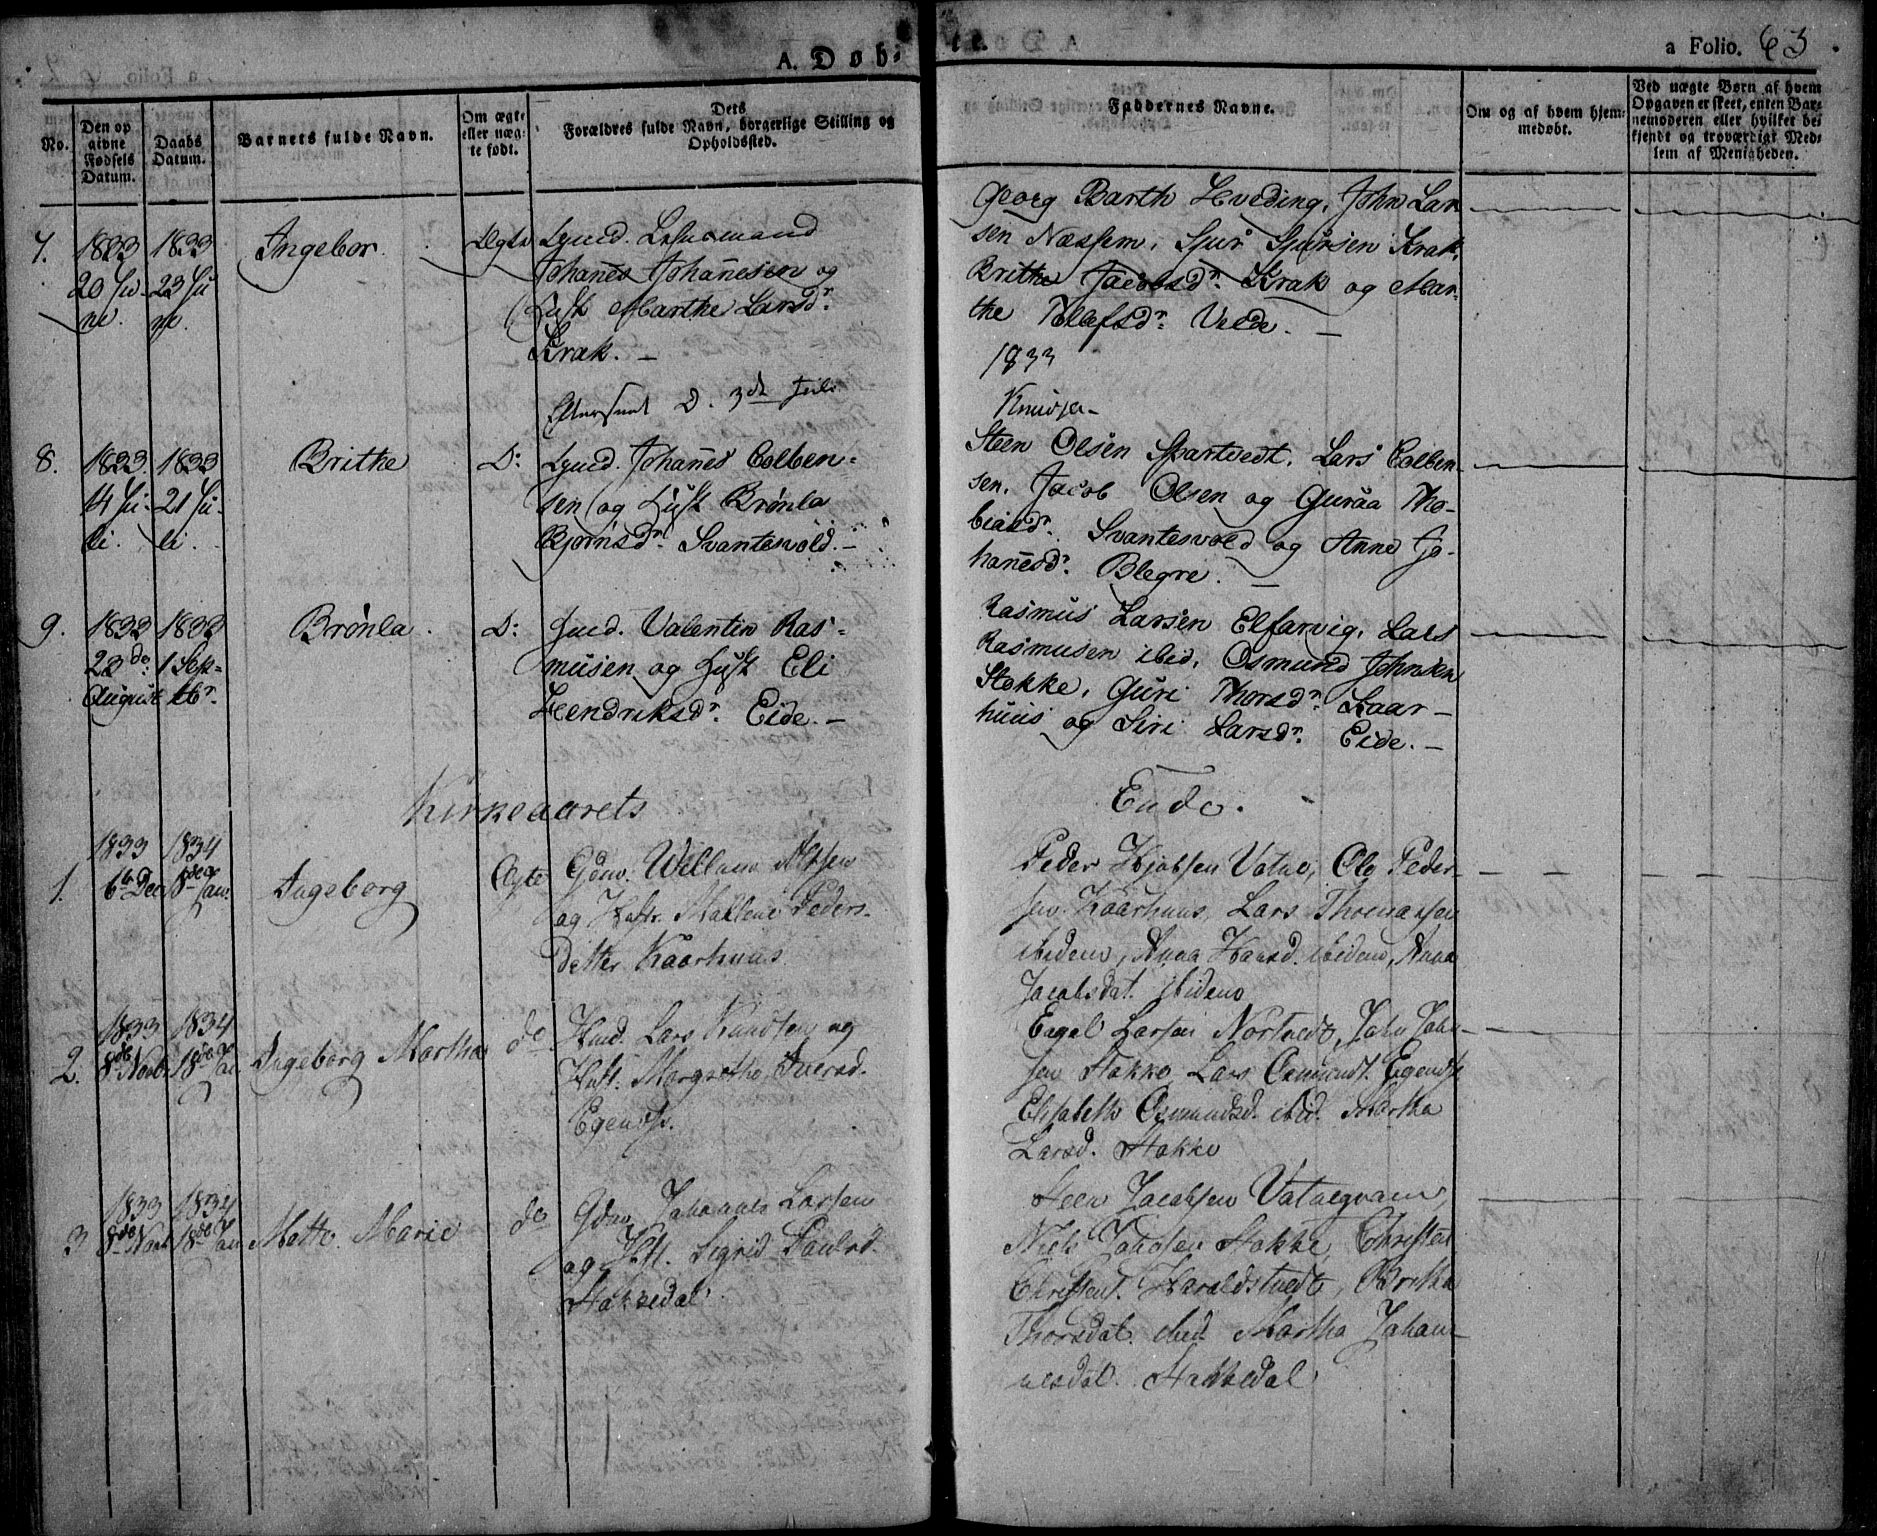 A. Døbte.
a Folio. 63
No.
Den op
givne
Fødsels
Datum.
Daabs
Datum.
Barnets fulde Navn.
Om ægte
eller uæg-
te født.
Dets
Forældres fulde Navn, borgerlige Stilling og
Opholdssted.
Faddernes Navne.
Om og af hvem hjem-
medøbt.
Ved uægte Børn af hvem
Opgaven er skeet, enten Bar-
nemoderen eller hvilket be-
kjendt og troværdigt Med-
lem af Menigheden.
7. 1833 1833 Ingebor. Ægte
20 Ju- 23 Ju
ne. ni.
Johanes Johanesen og
Hust Marthe Larsdr.
Krak. –
Georg Barth Hveding, John Lar
sen Næssem, Sjur Sjursen Krak,
Brithe Jacobsdr. Krak og Mar-
the Tolefsdr. Velde. –
1833
D. 3de Juli
Knudsen
8. 1833. 1833 Brithe D:
14 Ju- 21 Ju-
li. li.
Johanes Colben-
sen og Hust Brønla
Bjørnsdr. Svantesvold. –
Steen Olsen Spartvedt, Lars Colben-
sen, Jacob Olsen og Guraa Tho-
biasdr. Svantesvold og Anne Jo-
hanesdr. Blegre. –
9. 1833 1833 Brønla. D:
23de: 1 Sep-
August tbr.
Huusmd. Valentin Ras-
musen og Hust Eli
Hendriksdr. Eide. –
Rasmus Larsen Elfarvig, Lars
Rasmusen ibid, Osmund Johnsen
Stokke, Guri Thorsdr. Kaar-
huus og Siri Larsdr. Eide. –
Kirkeaarets Ende.
1833 1834
1. 6te Dec 8de Jan. Ingeborg Ægte
Gdm. Wellum
og Hustr. Mallene Peders-
detter Kaarhuus
Peder Kjølsen Vatne, Ole Peder-
sen Kaarhuus, Lars Thomassen
ibidem, Anna Hansd. ibidem, Anna
Jacobsdat. ibidem
1833 1834
2. 8de Novbr. 18de Jan Ingeborg Martha do
Huusmd. Lars Knudsen og
Hust. Margrethe Iversd.
Egenæss.
Engel Larsen Nortvedt, John John-
sen Stokke Lars Osmundt. Egenæss
Elisabeth Osmundsd. ibid. Martha
Larsd. Stokke
1833 1834
3 8de Novb 18de Jan Mette Marie do
Gdm. Johannes Larsen
og Hst. Sigrid Poulsd.
Stoksedal.
Steen Jacobsen Vatnegvam,
Niels Johnsen Stokke, Christen
Christent. Haraldstvedt, Britha
Thorsdat. ibid. Martha Johan-
nesdat. Stoksedal